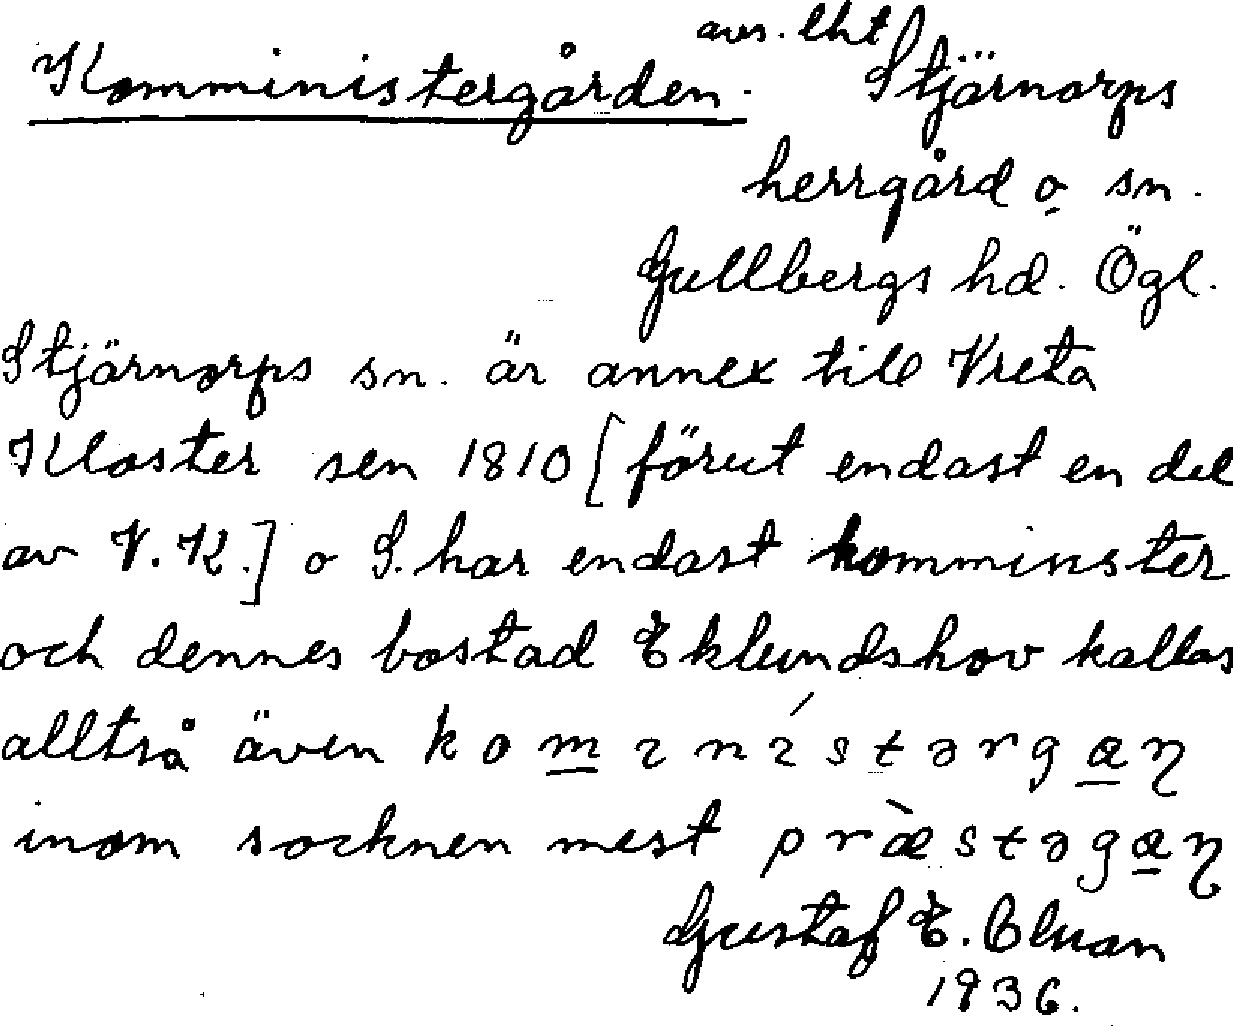 Komministergården. avs. lht Stjärnorps
herrgård o sn.
Gullbergs hd. Ögl.
Stjärnorps sn. är annex till Vreta
Kloster sen 1810 [förut endast en del
av V.K.] o S. har endast komminister
och dennes bostad Eklundshov kallas
alltså även
inom socknen mest
Gustaf E.
1936.